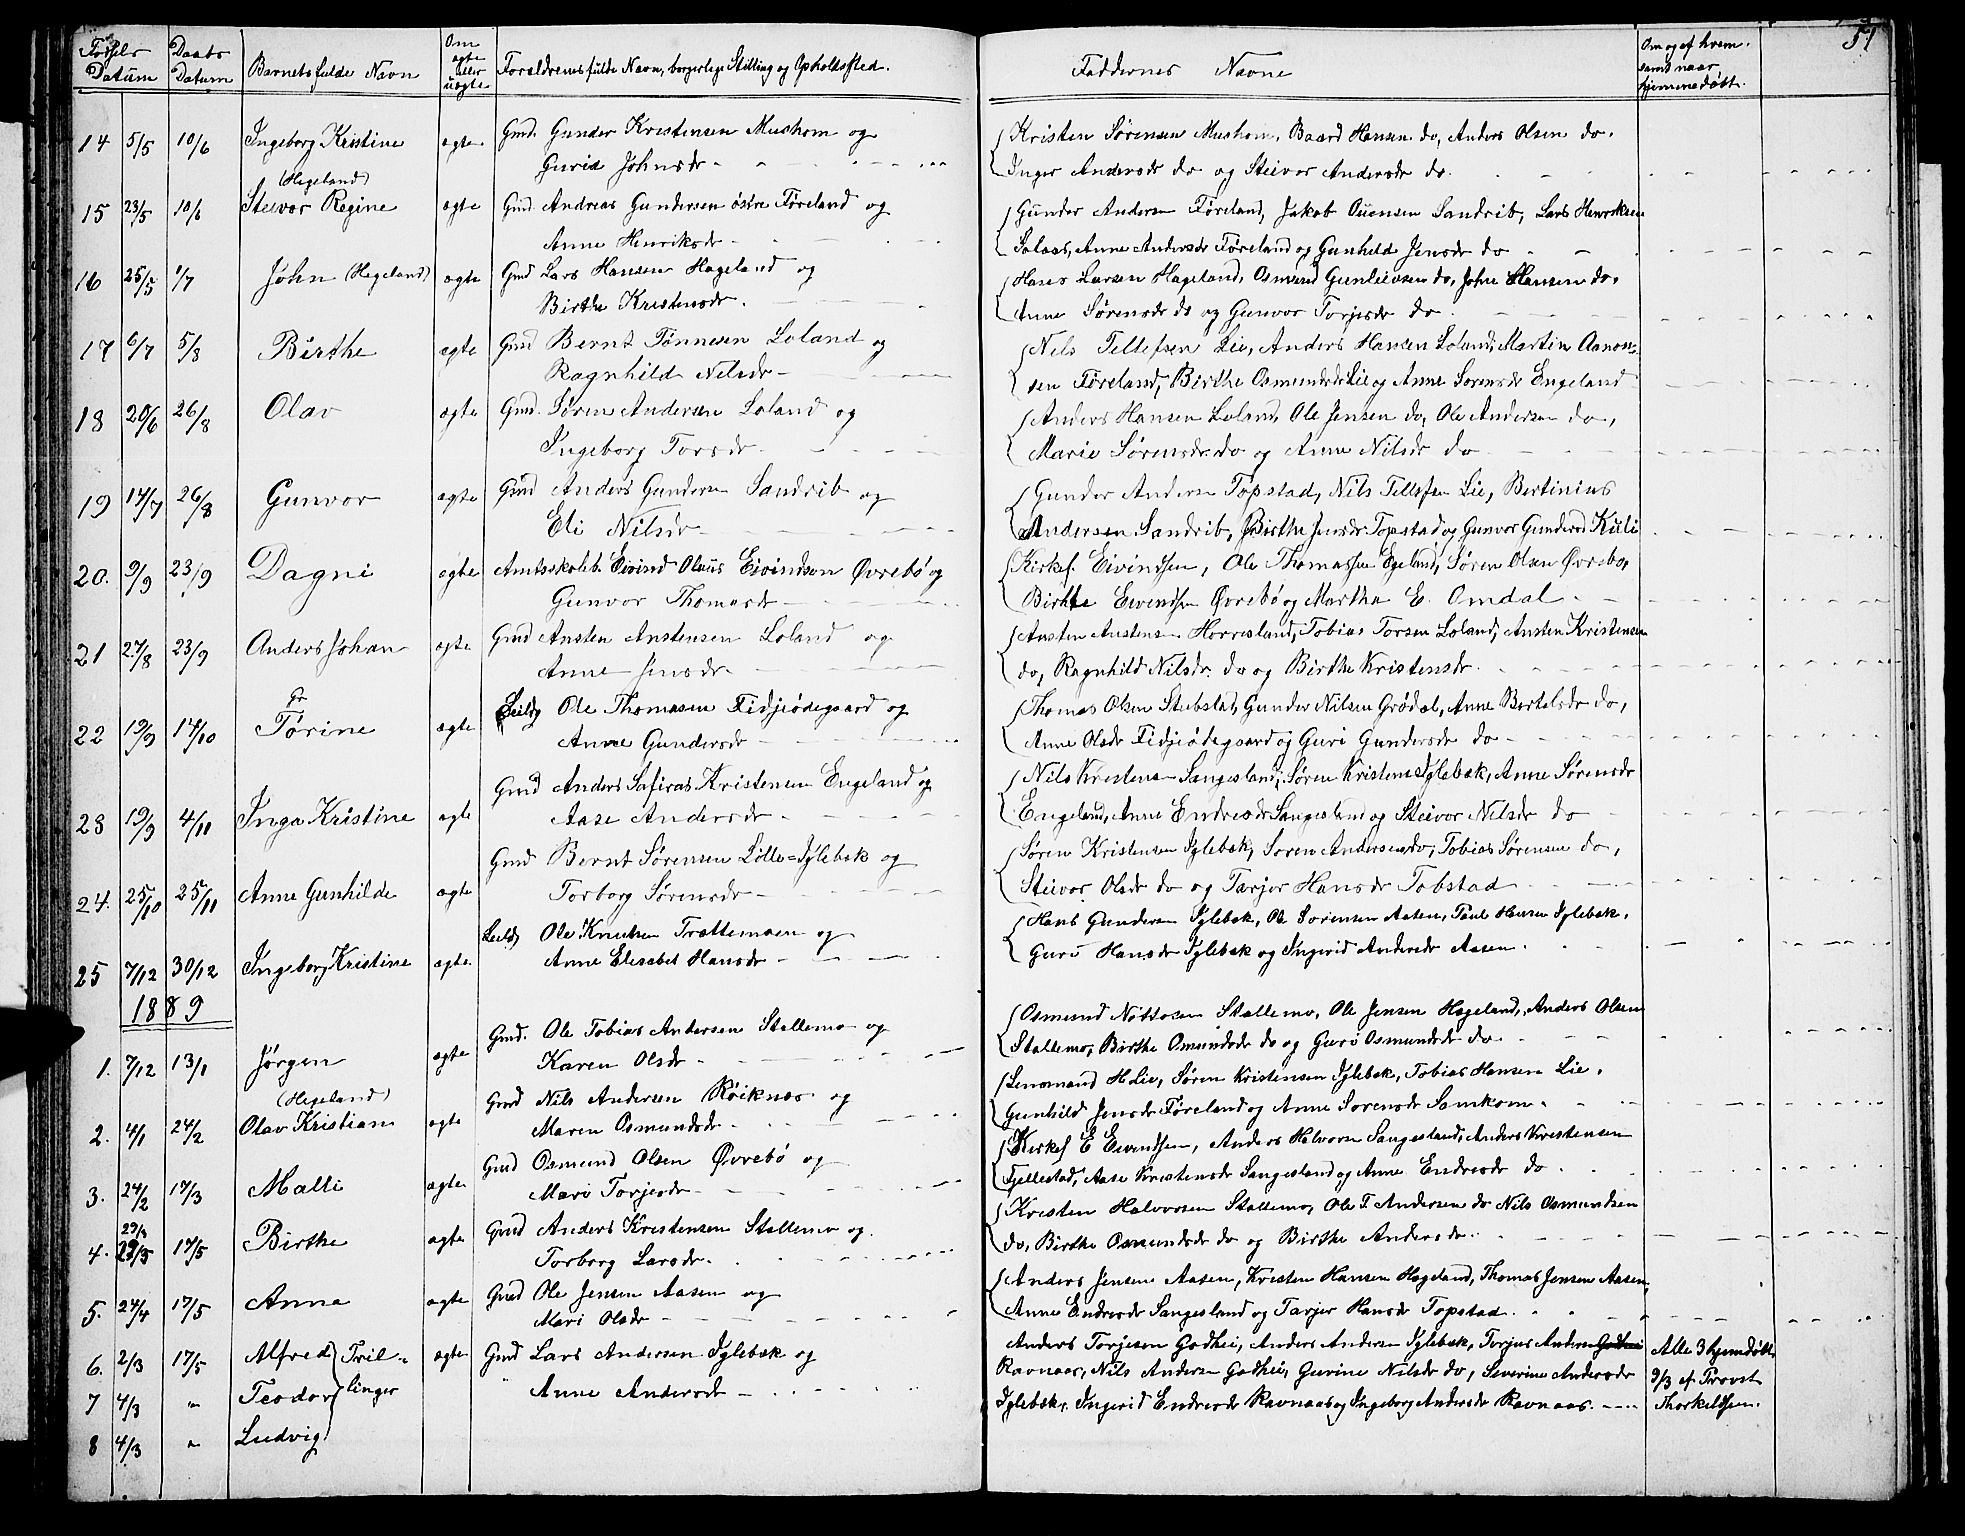 51
Fødsels Datum | Daabs Datum | Barnets fulde Navn | Om ægte eller uægte | Forældrenes fulde Navn, borgerlige Stilling og Opholdssted. | Faddernes Navne | Om og af hvem samt naar hjemmedøbt.
14 5/5 10/6 Ingeborg Kristine ægte Gmd. Gunder Kristensen Mushom og { Kristen Sørensen Mushom, Baard Hansen do, Anders Olsen do.
Gurid Johnsdr - Inger Andersdr do og Steivor Andersdr do.
15 23/5 10/6 (Hegeland) Steivor Regine ægte Gmd. Andreas Gundersen østre Føreland og { Gunder Andersen Føreland, Jakob Ouensen Sandrib, Lars Henriksen
Anne Henriksdr - Solaas, Anne Andersdr Føreland og Gunhild Jensdr do
16 25/5 1/7 John (Hegeland) ægte Gmd Lars Hansen Hageland og { Hans Larsen Hageland, Osmund Gunleivsen do, John Hansen do,
Birthe Kristensdr. Anne Sørensdr do og Gunvor Torjesdr do.
17 6/7 5/8 Birthe ægte Gmd Bernt Tønnesen Loland og { Nils Tellefsen Lie, Anders Hansen Loland, Martin Aanon-
Ragnhild Nilsdr - sen Føreland, Birthe Osmundsdr Lie og Anne Sørensdr Engeland
18 20/6 26/8 Olav ægte Gmd. Søren Andersen Loland og { Anders Hansen Loland, Ole Jensen do, Ole Andersen do,
Ingeborg Torsdr. Marie Sørensdr do og Anne Nilsdr do
19 14/7 26/8 Gunvor ægte Gmd Anders Gundersen Sandrib og { Gunder Andersen Topstad, Nils Tellefsen Lie, Bertinius
Eli Nilsdr - Andersen Sandrib, Birthe Jensdr Topstad og Gunvor Gundersd Kuli
20. 9/9 23/9 Dagni ægte Amtsskoleb. Eivind Olaus Eivindson Øvrebø og { Kirkes. Eivindsen, Ole Thomassen Egeland, Søren Olsen Øvrebø,
Gunvor Thomasdr - Birhte Eivendsen Øvrebø og Martha E. Omdal -
21 27/8 23/9 Anders Johan ægte Gmd Ansten Anstensen Loland og { Ansten Anstensen Horrisland, Tobias Torsen Loland, Ansten Kristensen
Anne Jensdr. do, Ragnhild Nilsdr. do og Birthe Kristensdr.
22 19/9 14/10 Tørine ægte Leild Ole Thomasen Fidjeødegaard og { Thomas Olsen Stubslid, Gunder Nilsen Grødal, Anne Bertelsdr do,
Anne Gundersdr - Anne Olsdr Fidjeødegaard og Guri Gundersdr do
23 19/9 4/11 Inga Kristine ægte Gmd Anders Safiras Kristensen Engeland og { Nils Kristensen Sangesland, Søren Kristensen Iglebæk, Anne Sørensdr
Aase Andersdr - Engeland, Anne Endresdr Sangesland og Steivor Nilsdr do
24. 25/10 25/11 Anne Gunhilde ægte Gmd Bernt Sørensen Lølle=Iglebæk og { Søren Kristensen Iglebæk, Søren Andersen do, Tobias Sørensen do,
Torborg Sørensdr - Steivor Olsdr do og Tarjer Hansdr Tobstad
25 7/12 30/12 Ingeborg Kristine ægte Leild Ole Knutsen Trættemoen og { Hans Gundersen Iglebæk, Ole Sørensen Aasen, Paul Hansen Iglebæk,
Anne Elisabet Hansdr - Guri Hansdr Iglebæk og Ingerid Andersdr Aasen.
1889
1. 7/12 13/1 Jørgen ægte Gmd. Ole Tobias Andersen Stallemo og { Osmund Nottosen Stallemo, Ole Jensen Hageland, Anders Olsen
Karen Olsdr - Stallemo, Birthe Osmundsdr do og Guro Osmundsdr do.
2. 4/1 24/2 (Hegeland) Olav Kristian ægte Gmd Nils Andersen Røiknæs og { Lensmand H. Lie, Søren Kristensen Iglebæk, Tobias Hansen Lie,
Maren Osmundsdr. Gunhild Jensdr Føreland og Anne Sørensdr Samkom.
3. 24/2 17/3 Malli ægte Gmd Osmund Olsen Øvrebø og { Kirkes E Eivendsen, Anders Halvorsn Sangesland, Anders Kristensen
Mari Torjesdr - Fjellestad, Aase Kristensdr Sangesland og Anne Endresdr do.
4. 29/3 17/5 Birthe ægte Gmd Anders Kristensen Stallemo og { Kristen Halvorsen Stallemo, Ole T. Andersen do Nils Osmundsen
Torborg Larsdr. do, Birthe Osmundsdr do og Birthe Andersdr.
5. 24/4 17/5 Anna ægte Gmd Ole Jensen Aasen og { Anders Jensen Aasen, Kristen Hansen Hageland, Thomas Jensen Aasen,
Mari Olsdr - Anne Endresdr Sangesland og Tarjer Hansdr Topstad.
6. 2/3 17/5 Alfred } Tril- ægte Gmd Lars Andersen Iglebæk og Anders Torjesen Godhei, Anders Andersen Iglebæk, Torjus Andersen Godhei Alle 3 hjemdøbt
7 4/3 " Teodor } linger " Anne Andersdr - Ravnaas, Nils Andersen Godhei, Gurine Nilsdr do, Severine Andersdr 9/3 af Provst
8 4/3 " Ludvig } Iglebæk, Ingerid Endresdr Ravnaas og Ingeborg Andersdr Ravnaas. Thorkildsen.